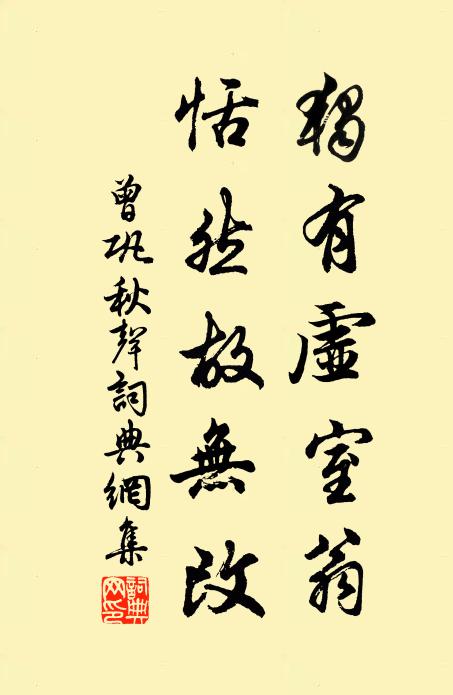 獨有虛室翁
恬然故無改
曾巩秋聲詞典網集
詞典網印